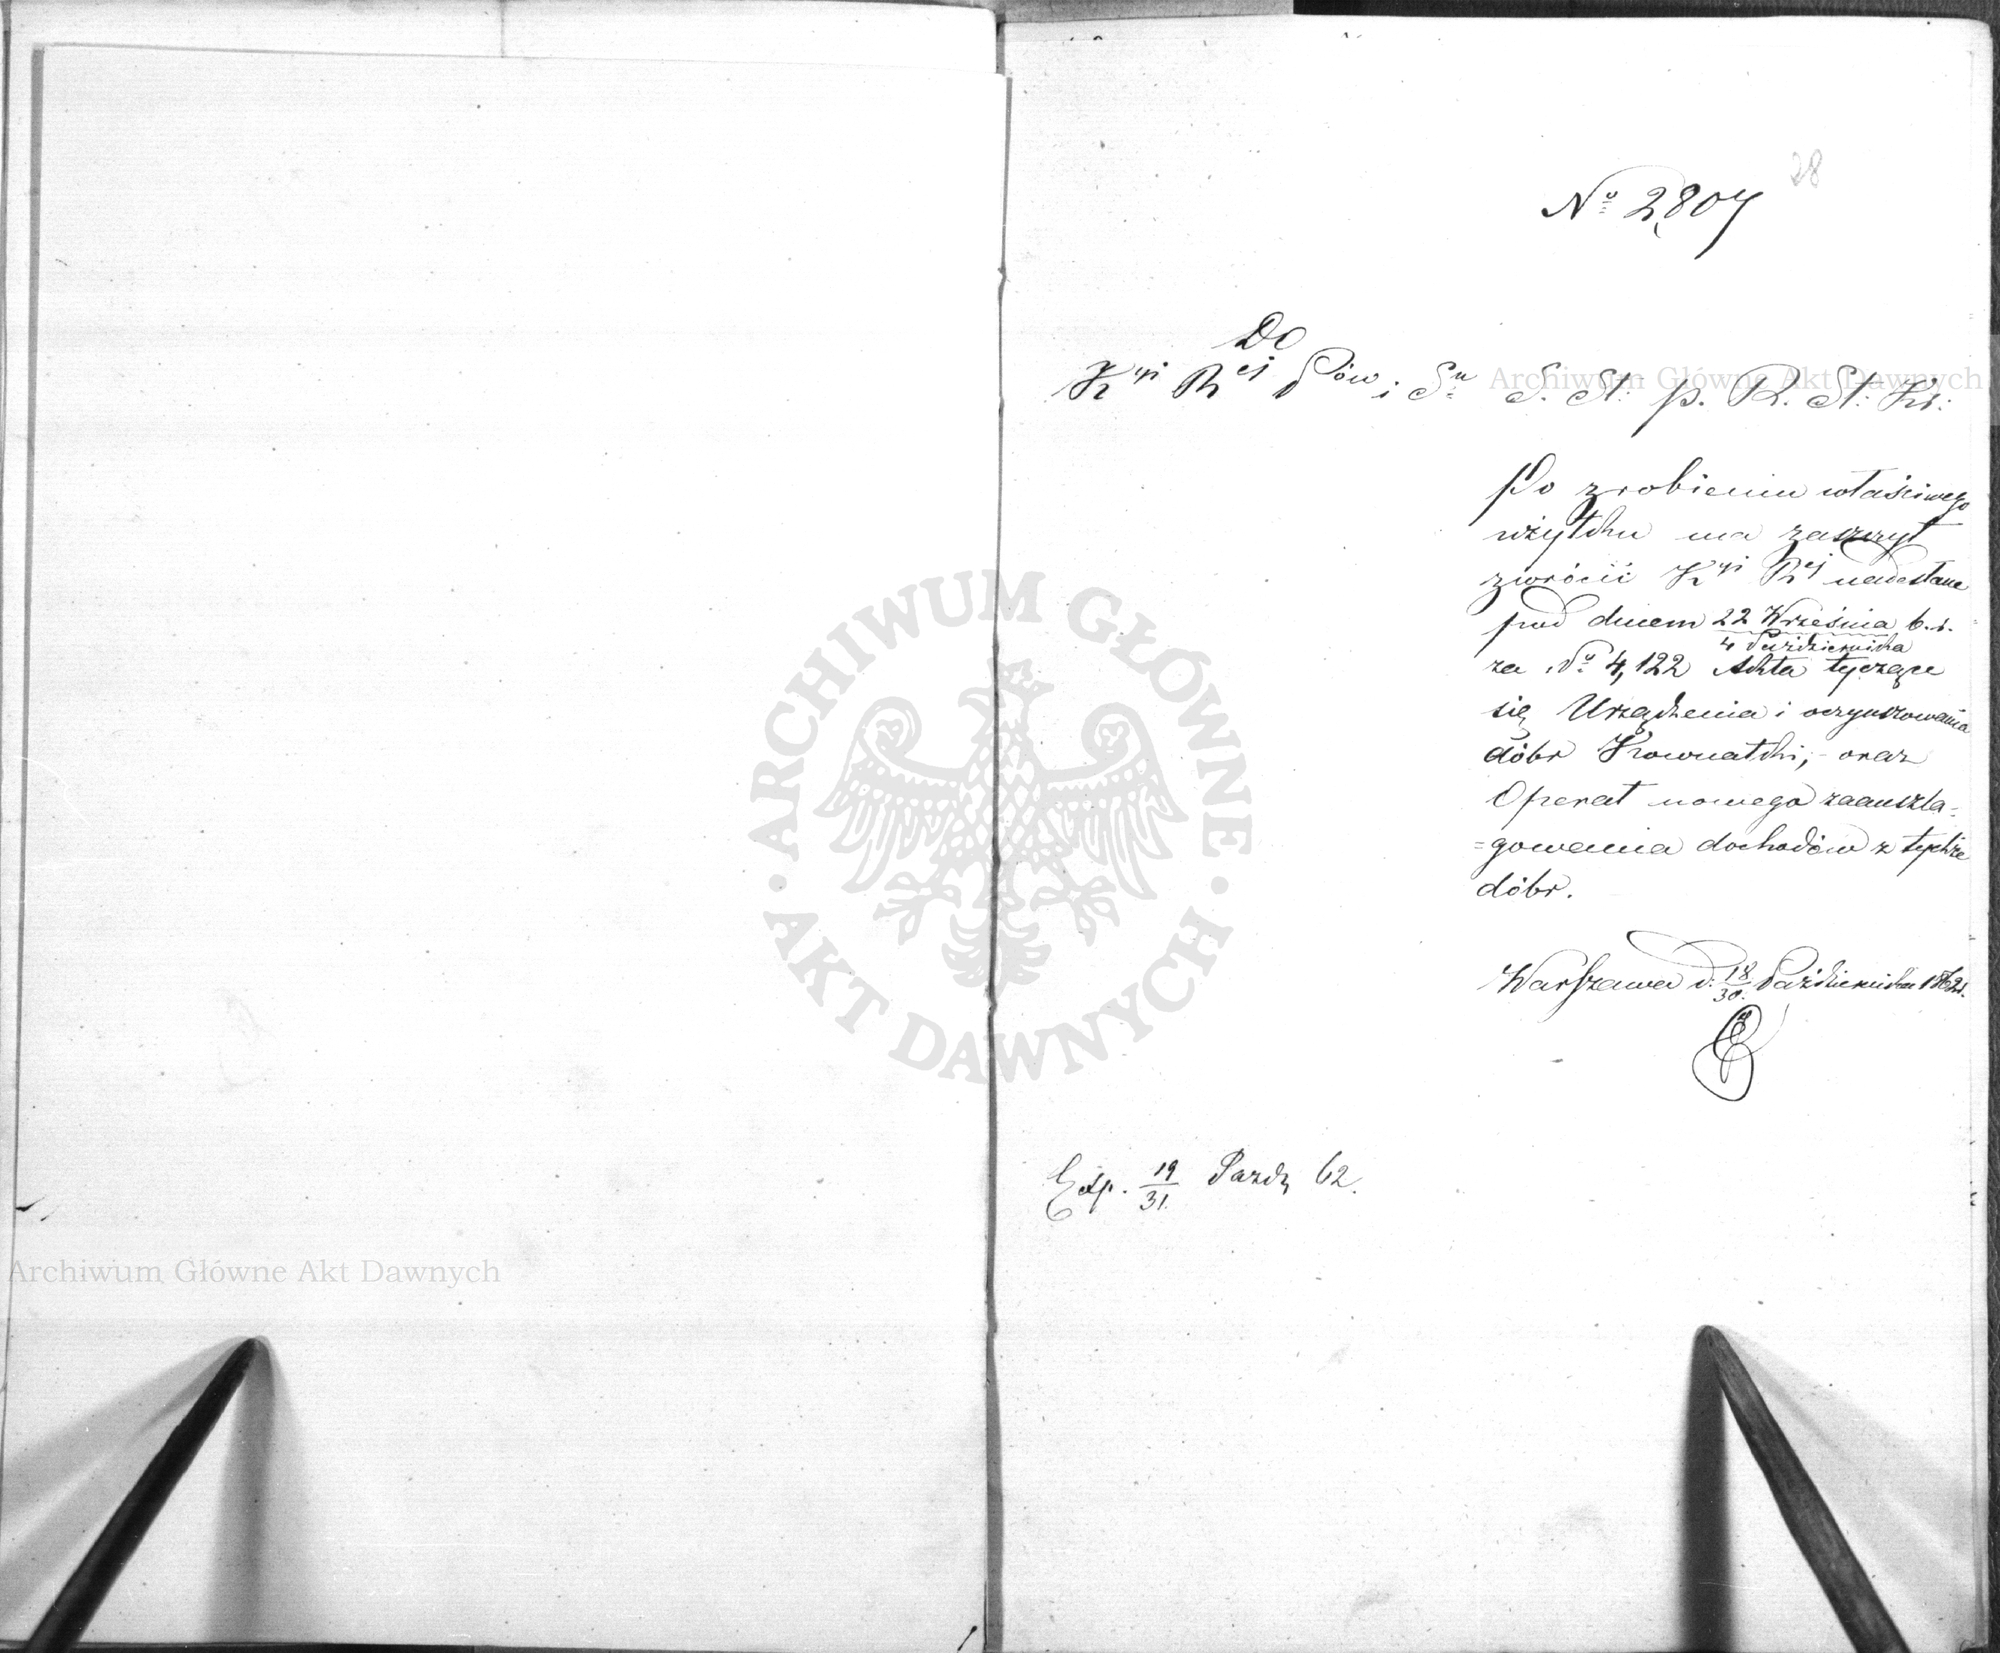 28
No 2,807
Do
Kyi Rej Pów i Su S. St: p. R. St: Kr:
Po zrobieniu właściwego
użytku ma zaszczyt
zwrócić Kyi Rej nadesłane
pod dniem 22 Września b. r.
4 Października
za No 4,122 Akta tyczące
się Urządzenia i oczynszowania
dóbr Kownatki; - oraz
Operat nowego zaanszla=
=gowania dochodów z tychże
dóbr.
Warszawa d. 18/30. Października 1862 r.
Exp. 19/31. Paźdz 62.
Archiwum Główne Akt Dawnych
Archiwum Główne Akt Dawnych
ARCHIWUM GŁÓWNE
AKT DAWNYCH